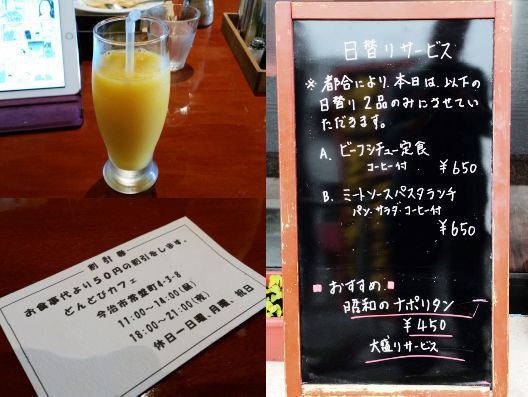 割引券
お食事代より50円の割引をします。
とんとびカフェ
今治市常盤町4-3-8
11:00〜14:00(昼)
18:00〜21:00(夜)
休日ー日曜、月曜、祝日
日替りサービス
※都合により、本日は、以下の
日替り2品のみにさせてい
ただきます。
A. ビーフシチュー定食
コーヒー付
¥650
B. ミートソースパスタランチ
パン・サラダ・コーヒー付
¥650
おすすめ
昭和のナポリタン
¥450
大盛りサービス